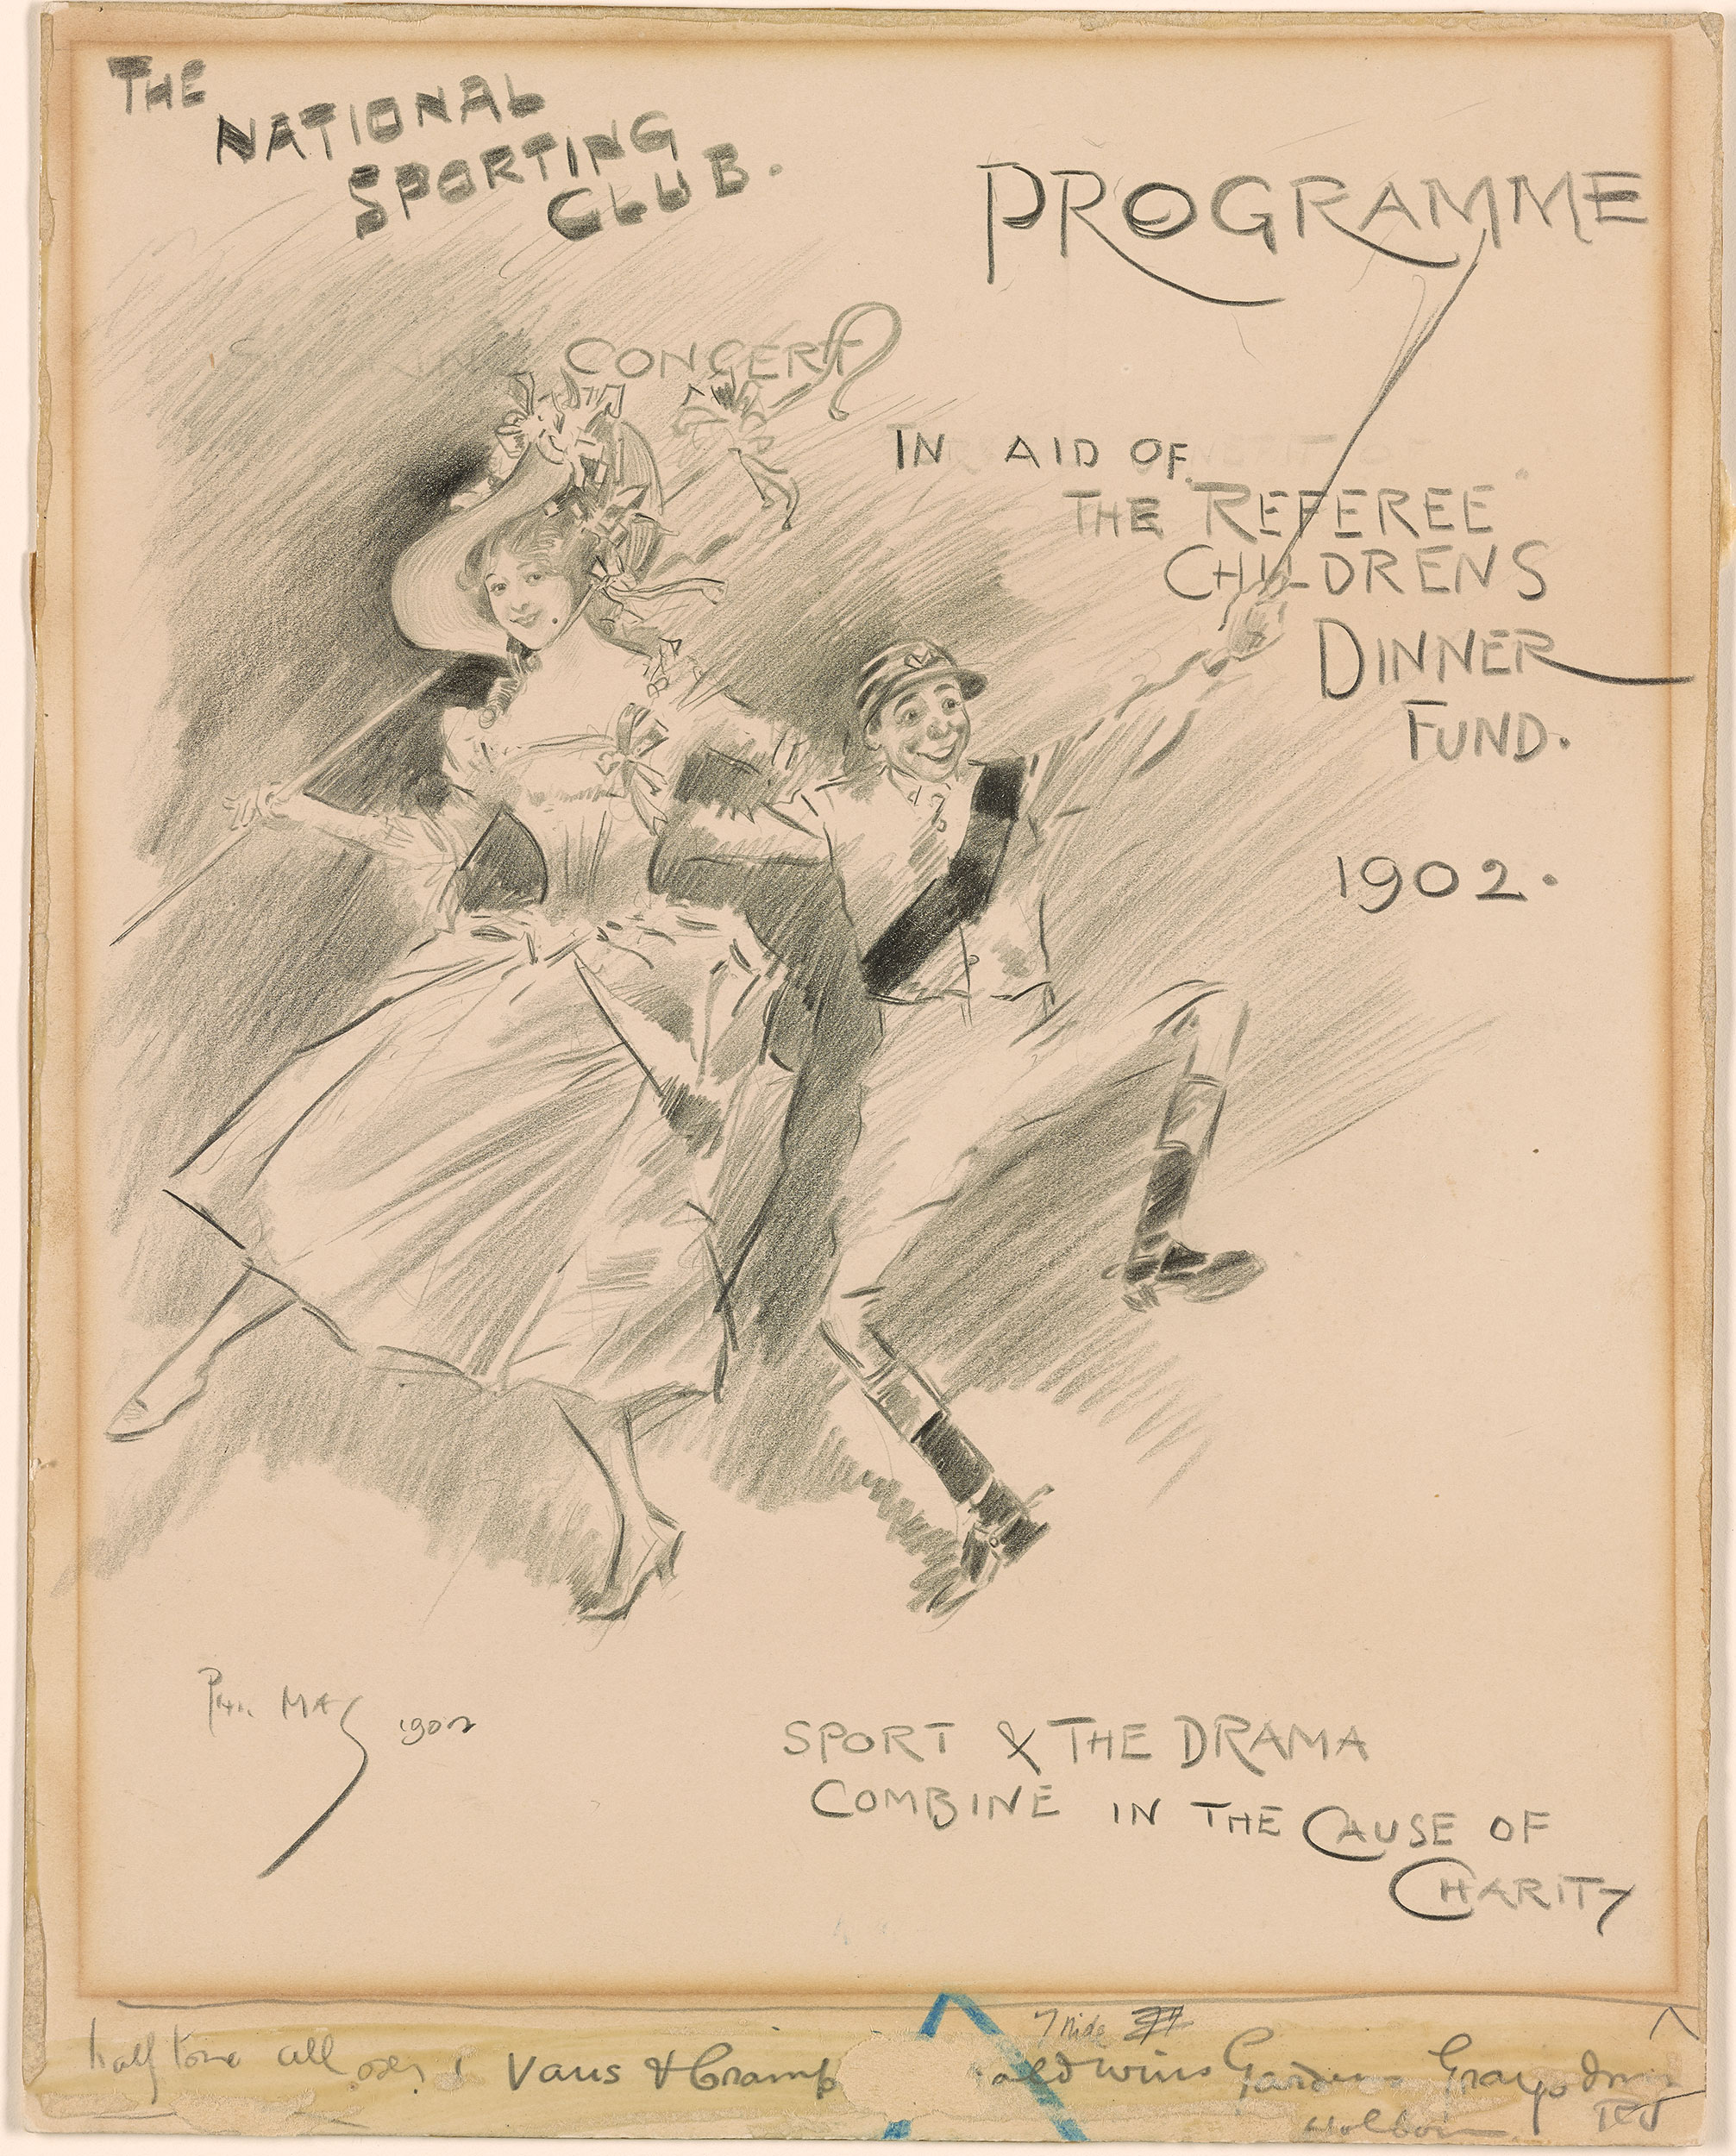 THE
NATIONAL
SPORTING
CLUB.
PROGRAMME
CONCERT
IN AID OF
THE "REFEREE"
CHILDRENS
DINNER
FUND.
1902.
PHIL MAY 1902
SPORT & THE DRAMA
COMBINE IN THE CAUSE OF
CHARITY
7 Wide
half tone all over Vaus & Crampt aldwins Gardens Grays Inn Rd
Holborn